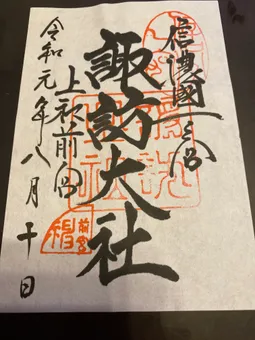 信濃國一之宮
諏訪大社
上社前宮
令和元年八月十日